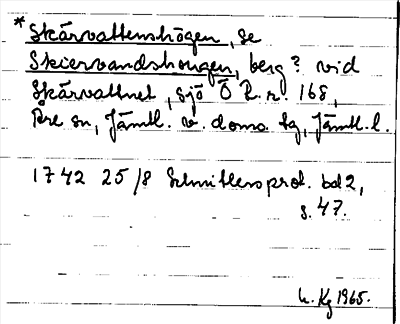 *Skärvattenshögen, se
Skiervandshougen, berg? vid
Skärvattnet, sjö Ö R.r. 168,
Åre sn, Jämtl. v. doms. tg, Jämtl. l.
1742 25/8 Schnitlers prot. bd 2,
s. 47.
h. Kg 1965.